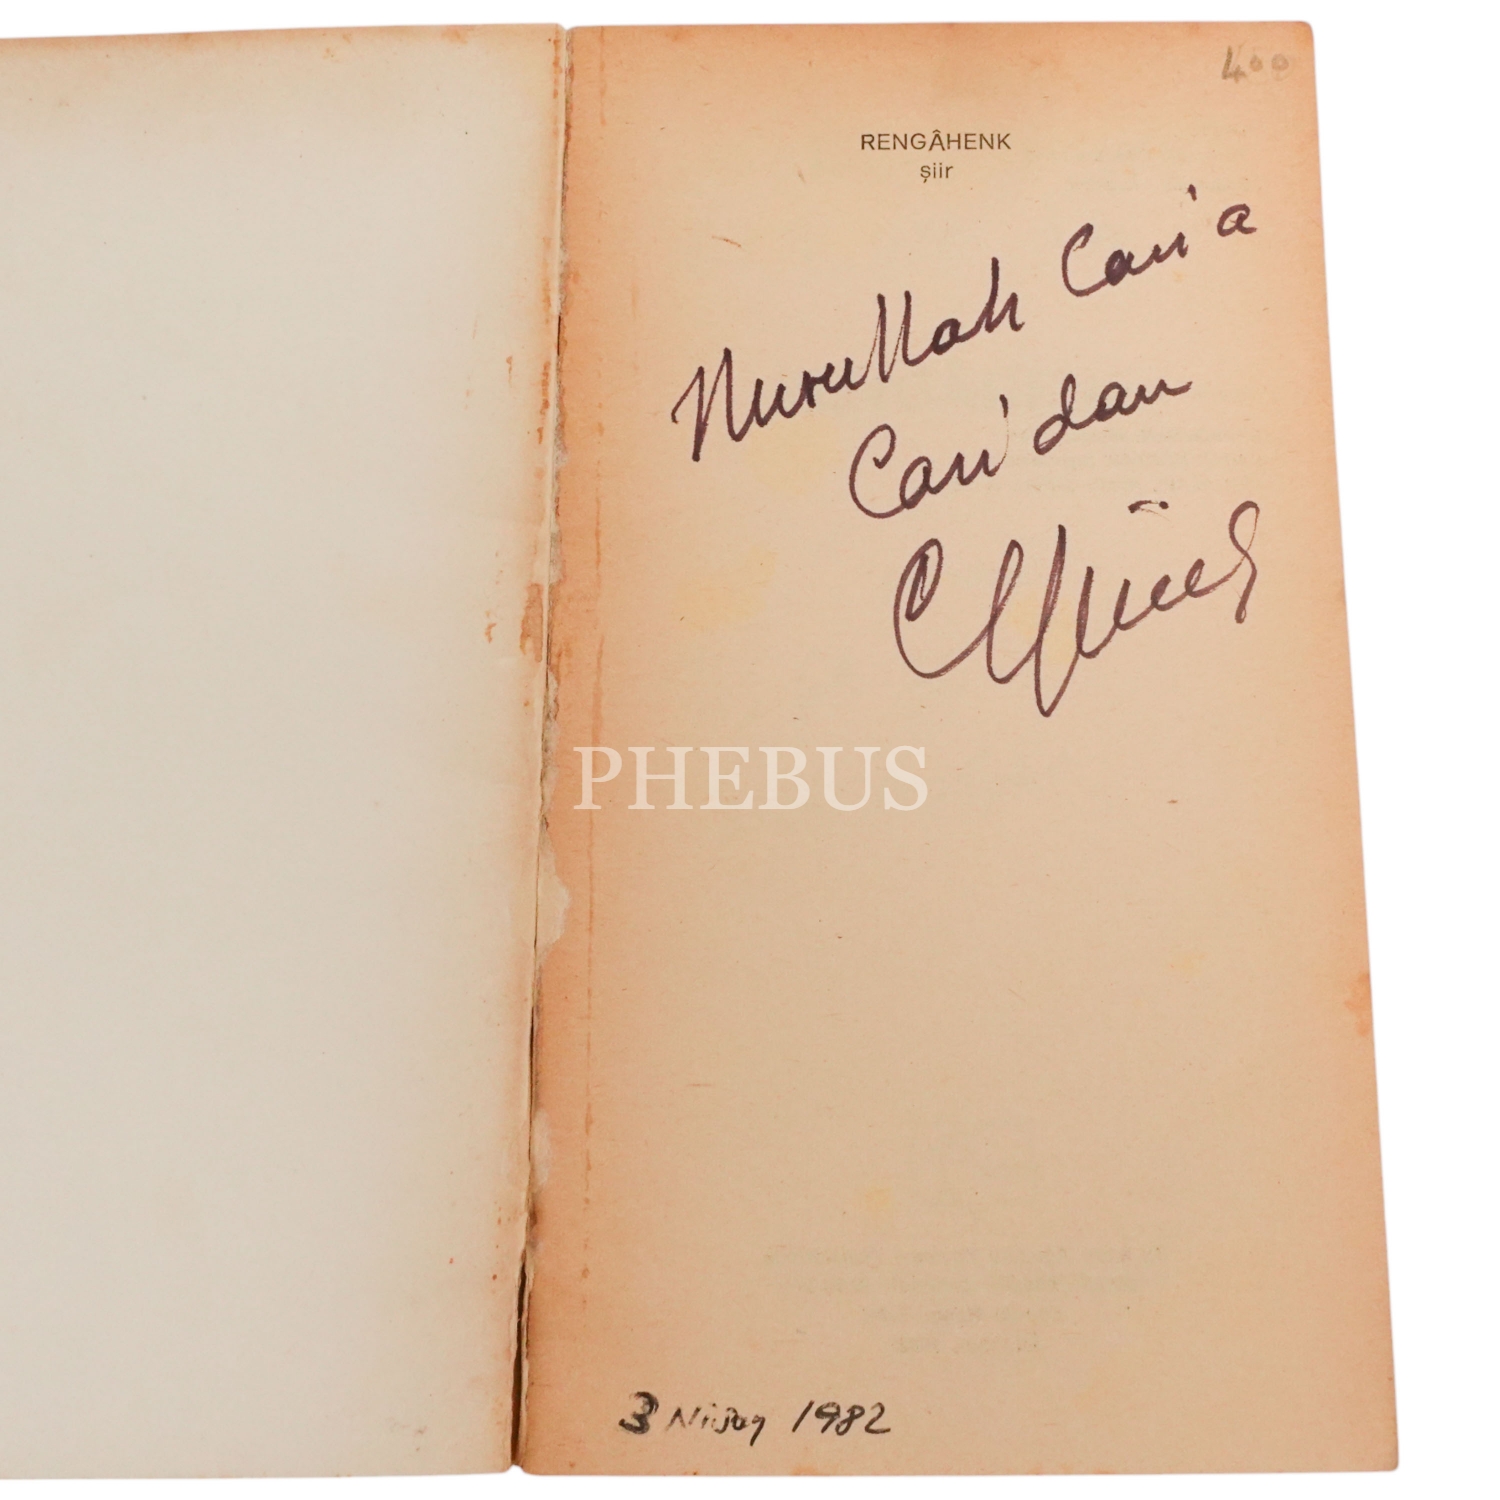 400
RENGÂHENK
şiir
Nurullah Can'a
Can'dan
PHEBUS
3 Nisan 1982